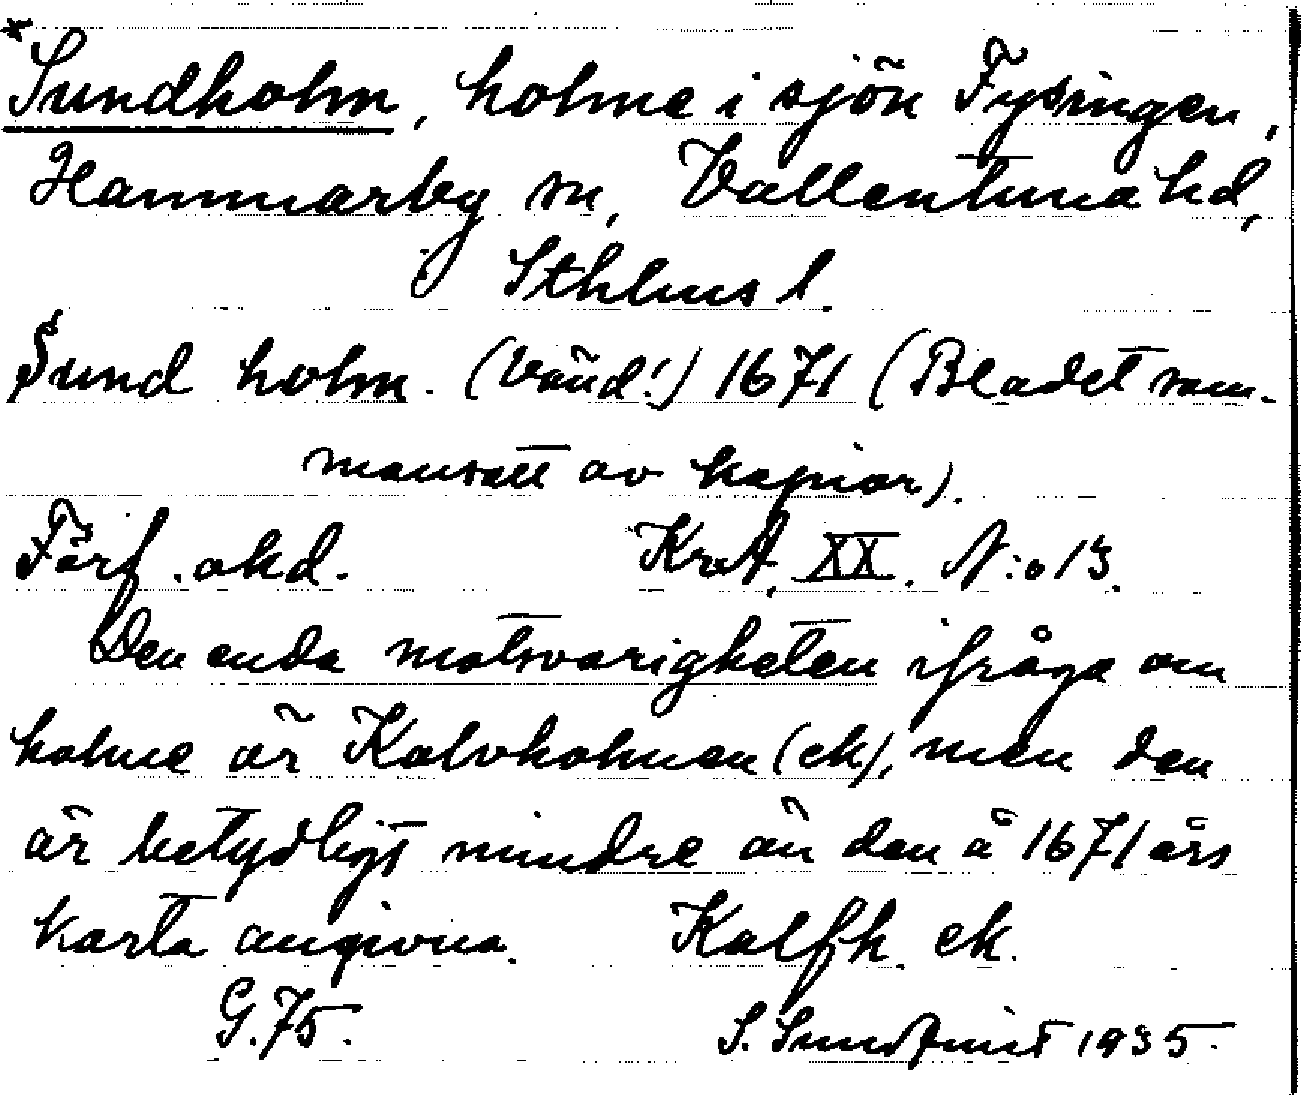 *Sundholm, holme i sjön Fysingen,
Hammarby sn, Vallentuna hd,
Sthlms l.
Sund holm. (Vänd!) 1671 (Bladet sam-
mansatt av kopior).
Förf. okd. KrA, XX. N:o 13.
Den enda motsvarigheten ifråga om
holme är Kalvholmen (ek), men den
är betydligt mindre än den å 1671 års
karta angivna. Kalfh. ek.
G. 75. S. Sundqvist 1935.